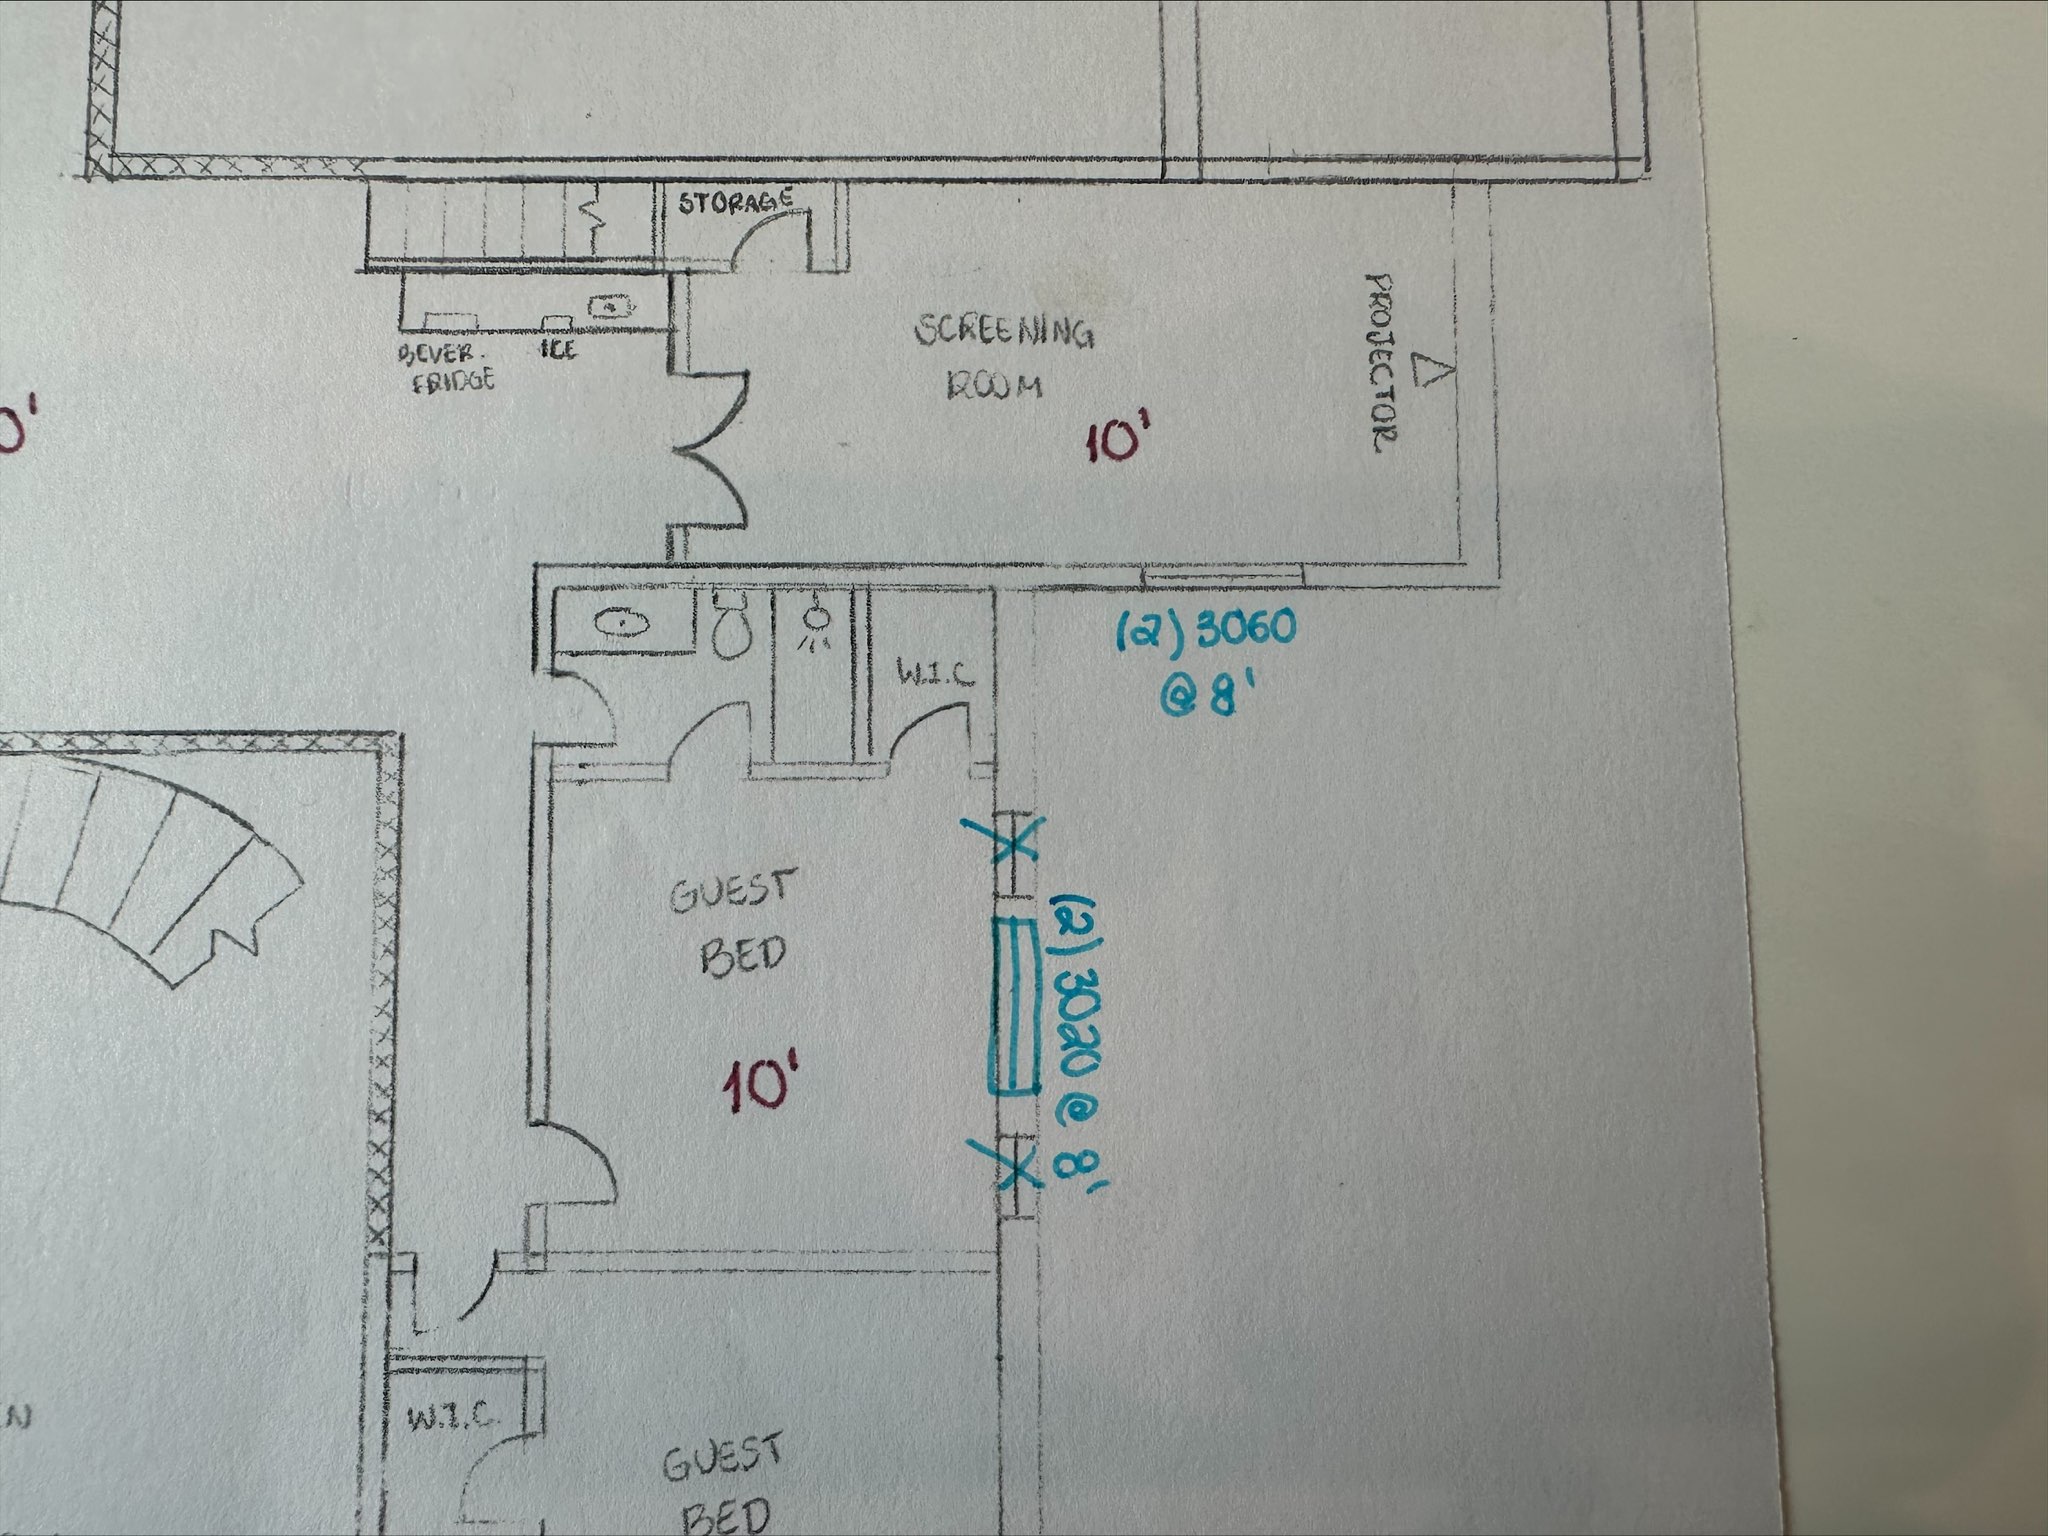 STORAGE
BEVER.
FRIDGE
ICE
SCREENING
ROOM
10'
PROJECTOR
0'
(2) 3060
@ 8'
W.I.C
GUEST
BED
10'
(2) 3020 @ 8'
W.I.C.
GUEST
BED